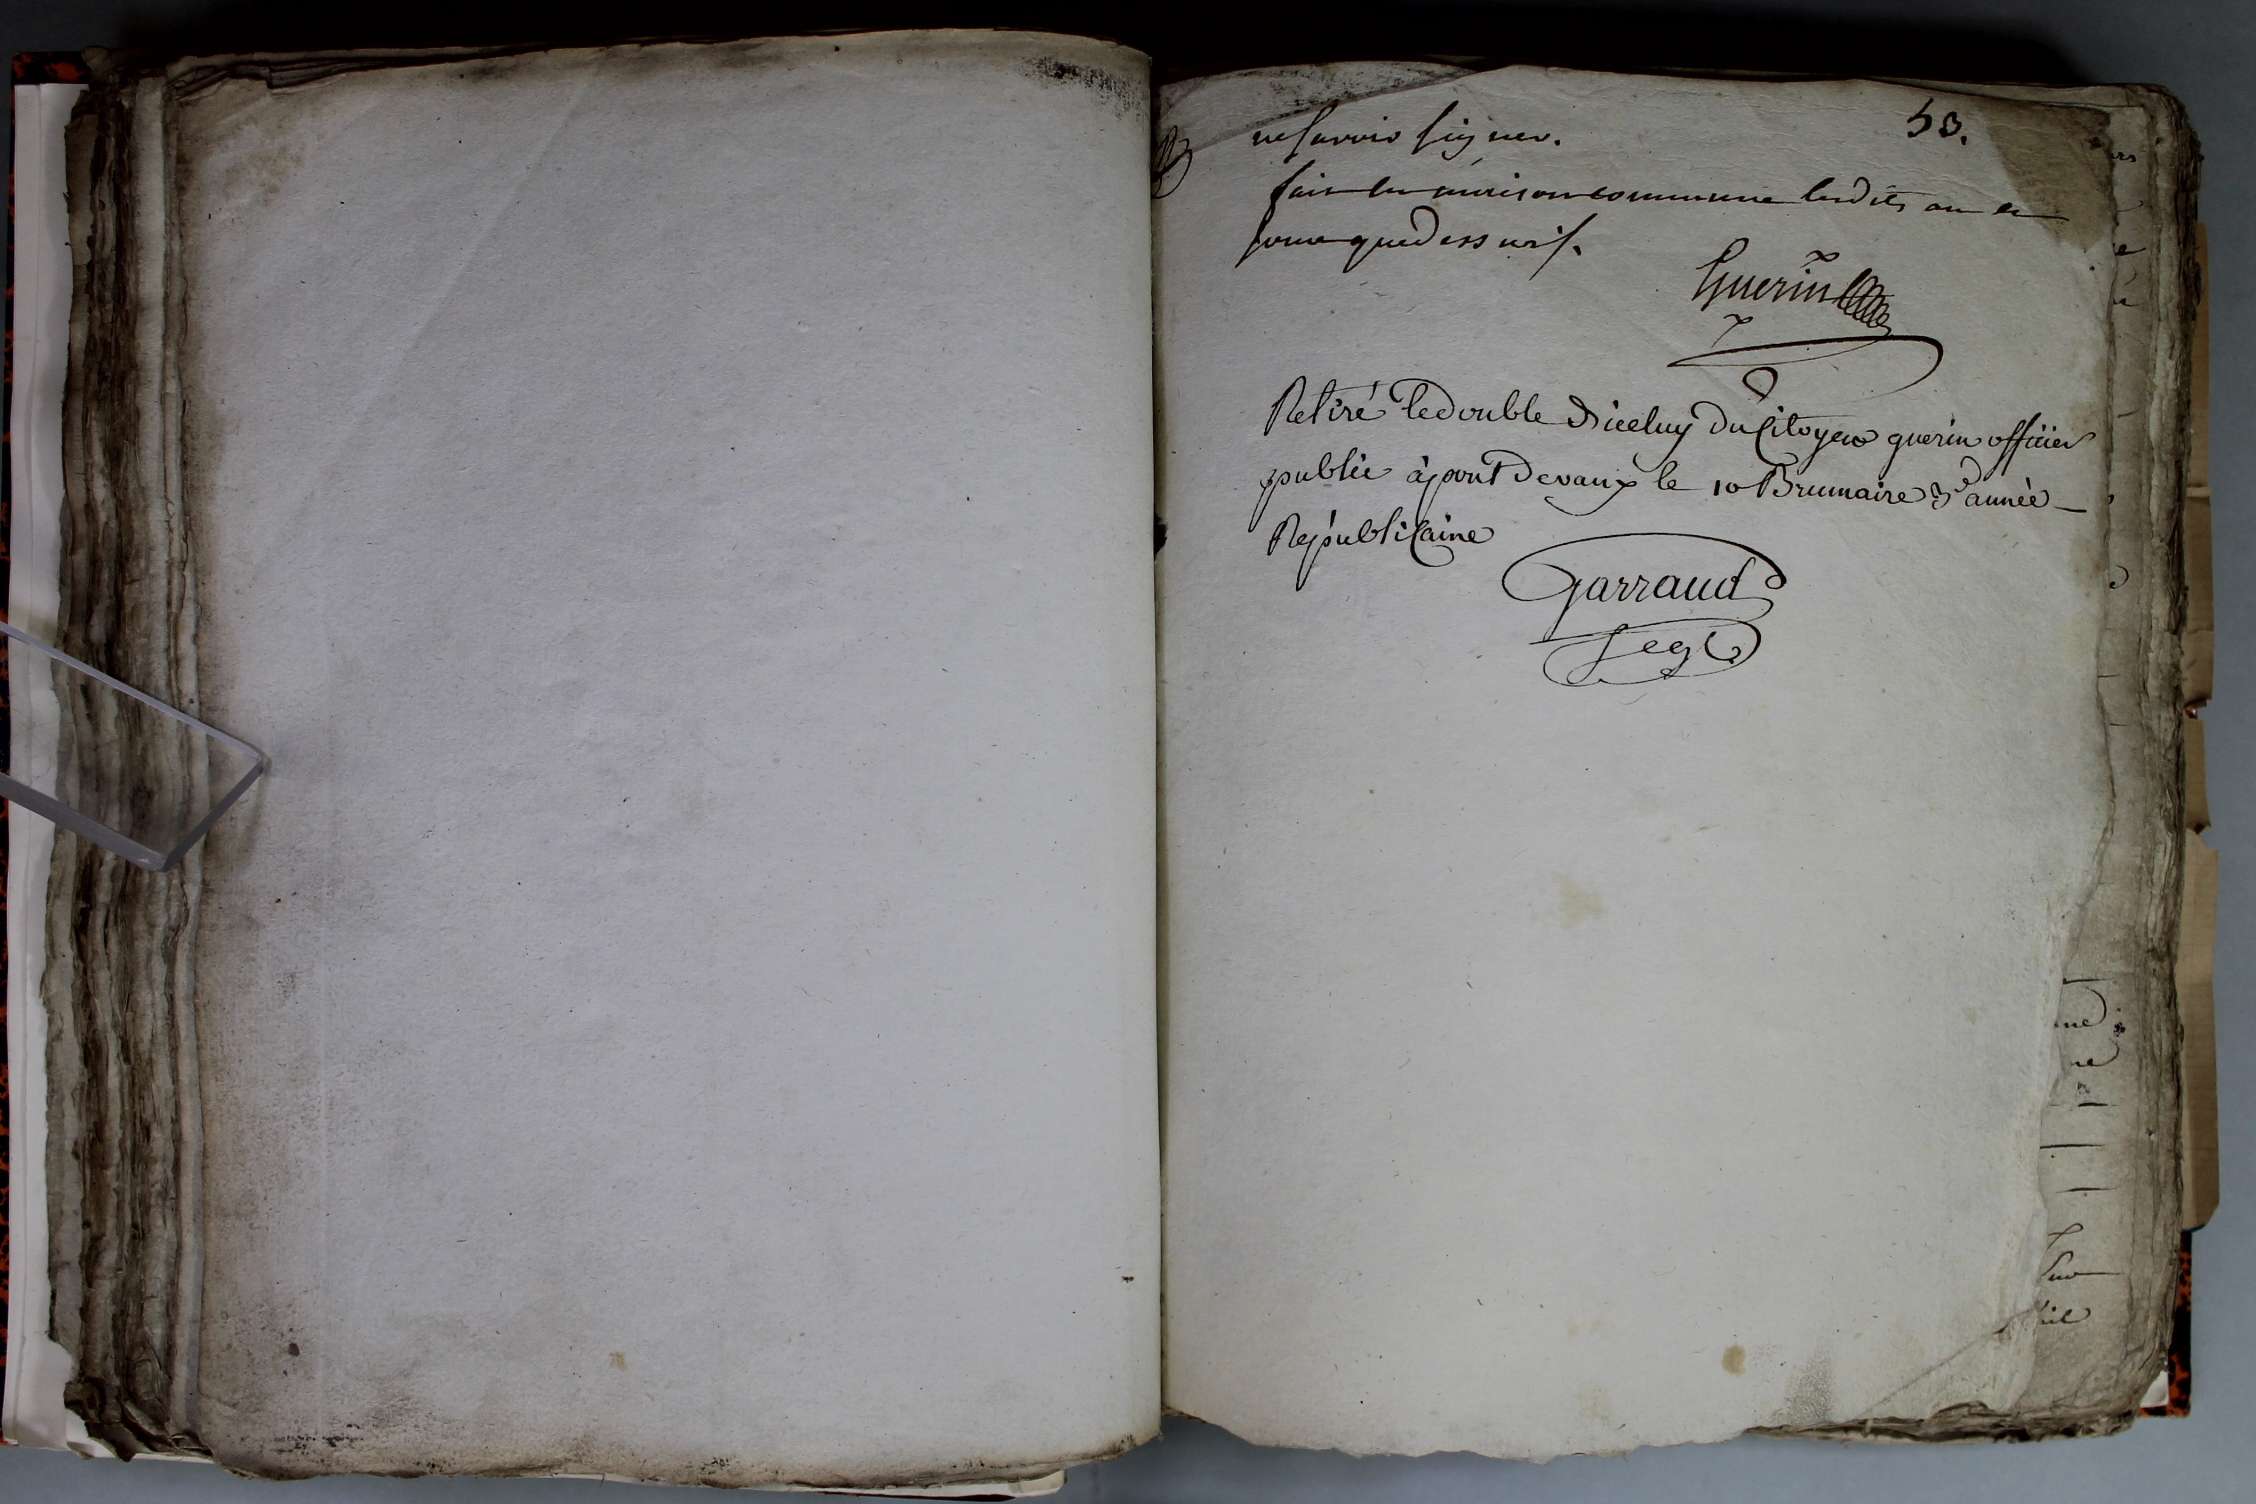 53.
ne savoir signer.
fait en maison commune lesdits an et
jour que dessus
Guerin
Retiré le double d'iceluy du Citoyen guerin officier
public à pont devaux le 10 Brumaire 3e année
Républicaine
Garraud